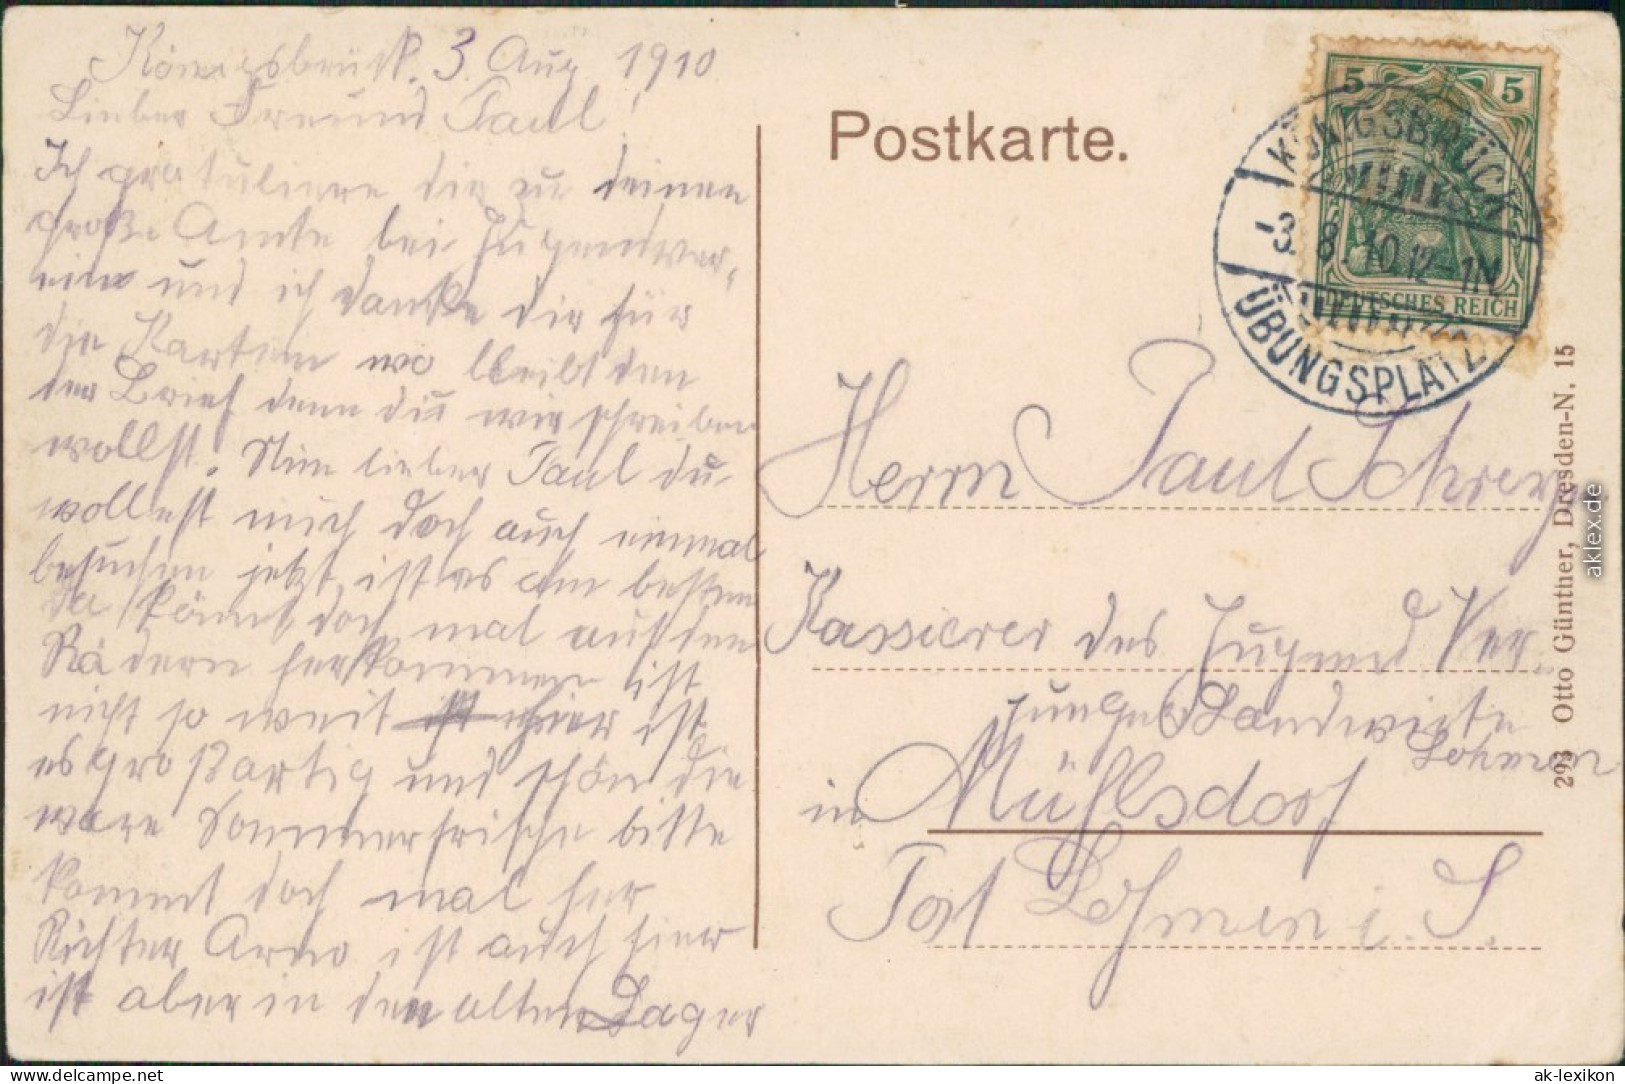 Königsbrück. 3. Aug. 1910
Lieber Freund Paul!
Ich gratuliere dir zu deinen
große Amte bei Jugendver-
ein und ich danke dir für
die Karten wo bleibt den
der Brief denn du mir schreiben
wollst. Nun lieber Paul du
wollest mich doch auch einmal
besuchen jetzt ist es am besten
da könnt doch mal auf den
Rädern herkommen ist
nicht so weit hier ist
es großartig und schön die
ware Sommerfrische bitte
kommt doch mal her
Richter Arno ist auch hier
ist aber in den alten Lager
Postkarte.
5 5
DEUTSCHES REICH
KÖNIGSBRÜCK
-3. 8. 10. 12-1N.
ÜBUNGSPLATZ
Herrn Paul
Kassierer des Jugend Ver.
junger Landwirte
Lohmen
in Mühlsdorf
Post Lohmen i. S.
293 Otto Günther, Dresden-N. 15
aklex.de
www.delcampe.net
ak-lexikon